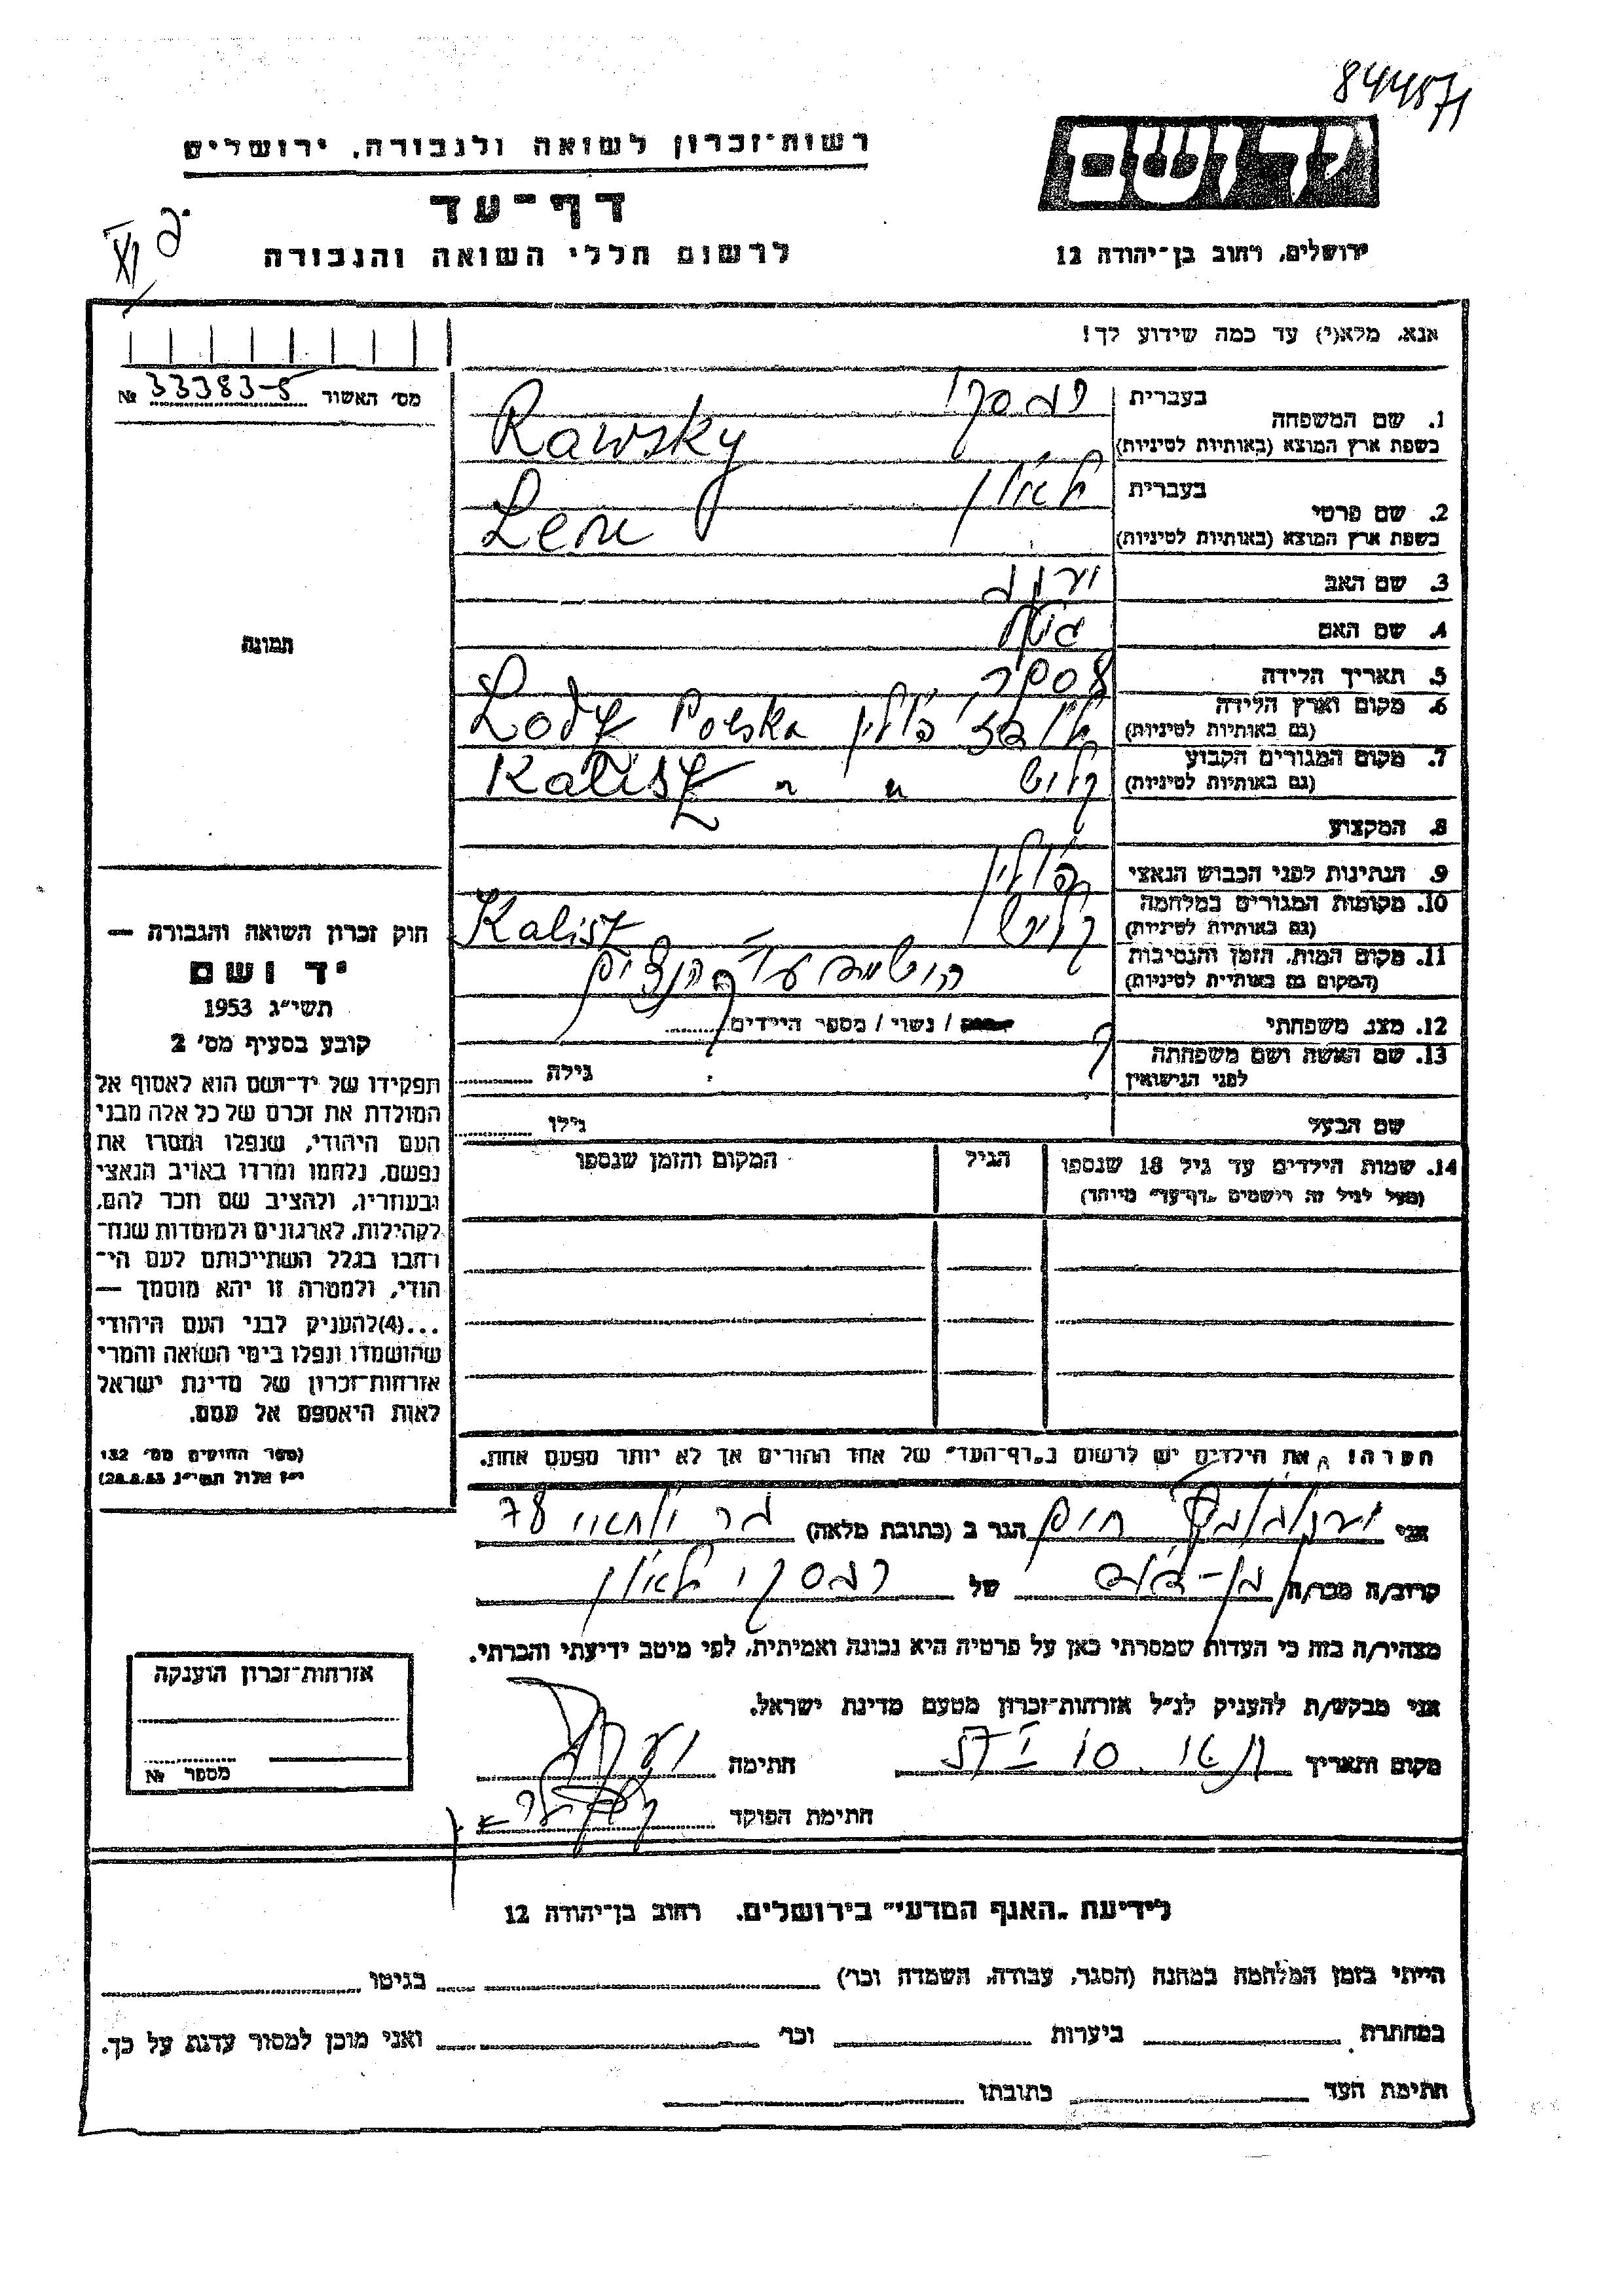 844571
רשות־זכרון לשואה ולגבורה, ירושלים
דף־עד
לרשום חללי השואה והגבורה
יד ושם
ירושלים, רחוב בן־יהודה 12
אנא, מלא(י) עד כמה שידוע לך!
מס׳ האשור № 33383-5
תמונה
1. שם המשפחה
בעברית רבסקי
בשפת ארץ המוצא (באותיות לטיניות) Rawsky
2. שם פרטי
בעברית לאון
בשפת ארץ המוצא (באותיות לטיניות)
3. שם האב
4. שם האם
5. תאריך הלידה
6. מקום וארץ הלידה
(גם באותיות לטיניות) לודז׳ פולין Lodz Polska
7. מקום המגורים הקבוע
(גם באותיות לטיניות) קליש " " Kalisz
8. המקצוע
9. הנתינות לפני הכבוש הנאצי פולין
10. מקומות המגורים במלחמה
(גם באותיות לטיניות) קליש Kalisz
11. מקום המות, הזמן והנסיבות
(המקום גם באותיות לטיניות) הושמד ע״י הנצים
12. מצב משפחתי / נשוי / מספר הילדים
13. שם האשה ושם משפחתה
לפני הנישואין גילה
שם הבעל גילו
14. שמות הילדים עד גיל 18 שנספו הגיל המקום והזמן שנספו
(מעל לגיל זה רושמים „דף־עד״ מיוחד)
חוק זכרון השואה והגבורה —
יד ושם
תשי״ג 1953
קובע בסעיף מס׳ 2
תפקידו של יד־ושם הוא לאסוף אל
המולדת את זכרם של כל אלה מבני
העם היהודי, שנפלו ומסרו את
נפשם, נלחמו ומרדו באויב הנאצי
ובעוזריו, ולהציב שם וזכר להם,
לקהילות, לארגונים ולמוסדות שנח־
רחבו בגלל השתייכותם לעם הי־
הודי, ולמטרה זו יהא מוסמך —
...(4)להעניק לבני העם היהודי
שהושמדו ונפלו בימי השואה והמרי
אזרחות־זכרון של מדינת ישראל
לאות היאספם אל עמם.
(ספר החוקים מס׳ 132
י״ז אלול תשי״ג 28.8.53)
הערה! את הילדים יש לרשום ב„דף־העד״ של אחד ההורים אך לא יותר מפעם אחת.
אני חיים הגר ב (כתובת מלאה) 78
קרוב/ה מכר/ה בן-דוד של רבסקי לאון
מצהיר/ה בזה כי העדות שמסרתי כאן על פרטיה היא נכונה ואמיתית, לפי מיטב ידיעתי והכרתי.
אני מבקש/ת להעניק לנ״ל אזרחות־זכרון מטעם מדינת ישראל.
מקום ותאריך חתימה
חתימת הפוקד
אזרחות־זכרון הוענקה
מספר №
לידיעת „האגף המדעי״ בירושלים, רחוב בן־יהודה 12
הייתי בזמן המלחמה במחנה (הסגר, עבודה, השמדה וכו׳) בגיטו
במחתרת ביערות וכו׳ ואני מוכן למסור עדות על כך.
חתימת העד כתובתו